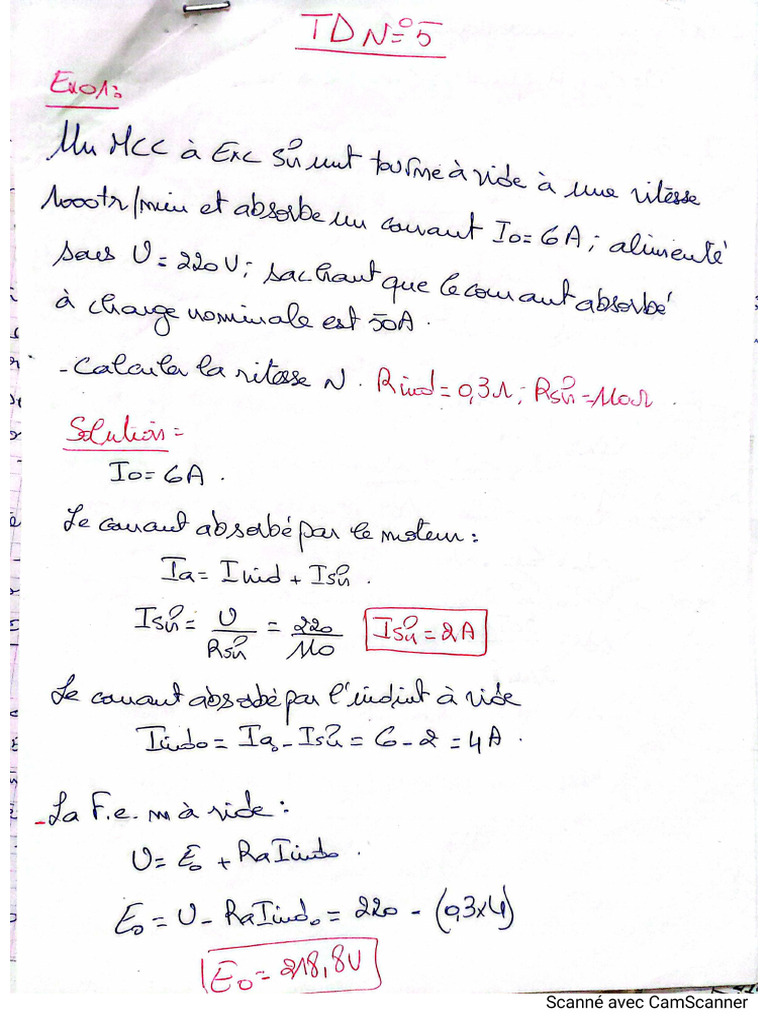 TD N=°5
Exo1:
Un MCC à Exc Shunt tourne à vide à une vitesse
1000tr/min et absorbe un courant I0=6A; alimenté
sous U=220V; sachant que le courant absorbé
à charge nominale est 50A.
-Calculer la vitesse N. Rind=0,3Ω; Rsh=110Ω.
Solution=
I0=6A.
Le courant absorbé par le moteur:
Ia=Iind+Ish.
Ish=U/Rsh=220/110 Ish=2A
Le courant absorbé par l'induit à vide
Iindo=Ia0-Ish=6-2=4A.
-La F.e.m à vide:
U=E0+RaIindo.
E0=U-RaIindo=220-(0,3x4)
E0=218,8V
Scanné avec CamScanner